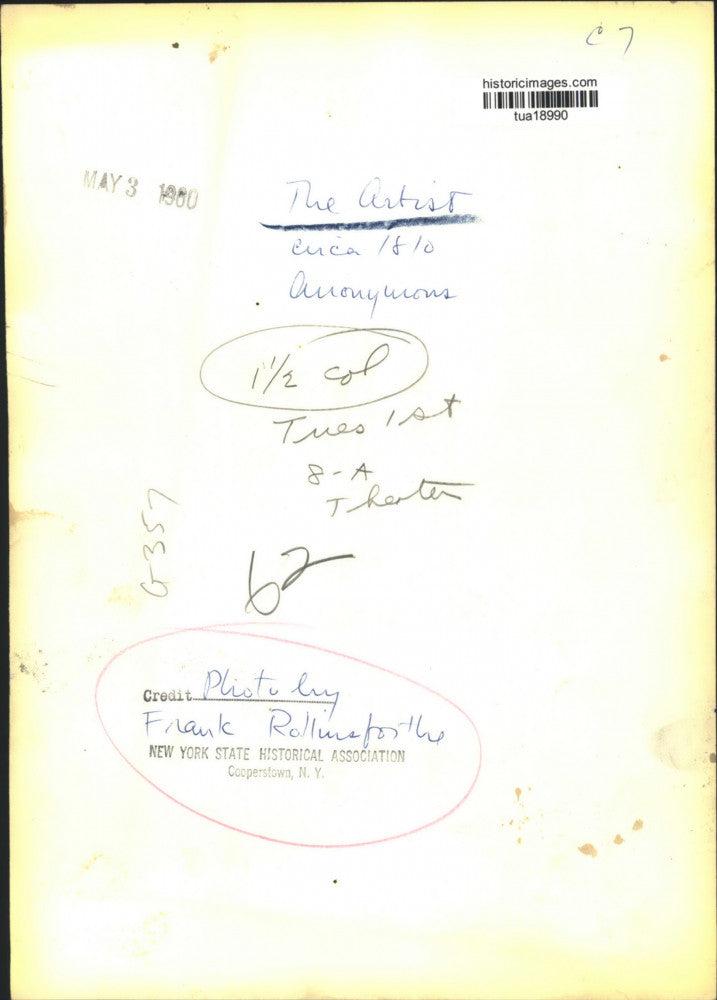 C 7
historicimages.com
tua18990
MAY 3 1960
The Artist
circa 1810
Anonymous
1 1/2 col
Tues 1st
8-A
Theater
G357
62
Credit Photo by
Frank Rollins for the
NEW YORK STATE HISTORICAL ASSOCIATION
Cooperstown, N. Y.